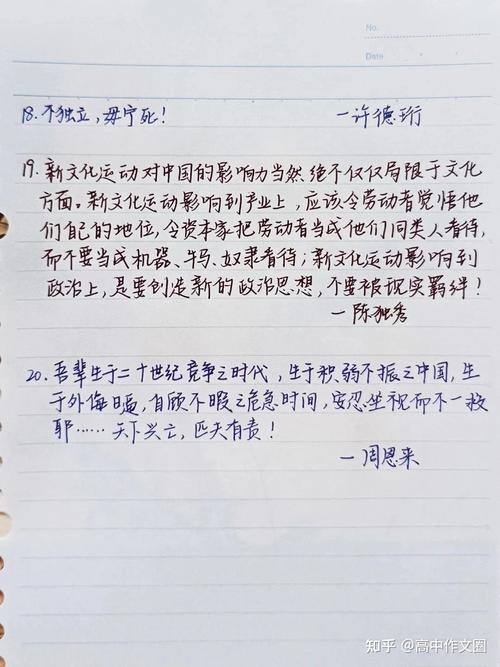 No.
Date
18. 不独立，毋宁死！ —许德珩
19. 新文化运动对中国的影响力当然绝不仅仅局限于文化
方面。新文化运动影响到产业上，应该令劳动者觉悟他
们自己的地位，令资本家把劳动者当成他们同类人看待，
而不要当成机器、牛马、奴隶看待；新文化运动影响到
政治上，是要创造新的政治思想，不要被现实羁绊！
—陈独秀
20. 吾辈生于二十世纪竞争之时代，生于积弱不振之中国，生
于外侮日嗌，自顾不暇之危急时间，安忍坐视而不一救
耶……天下兴亡，匹夫有责！
—周恩来
知乎 @高中作文圈